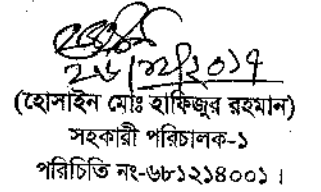 (হোসাইন মোঃ হাফিজুর রহমান)
সহকারী পরিচালক-১
পরিচিতি নং-৬৮১২১৪০০১ ।